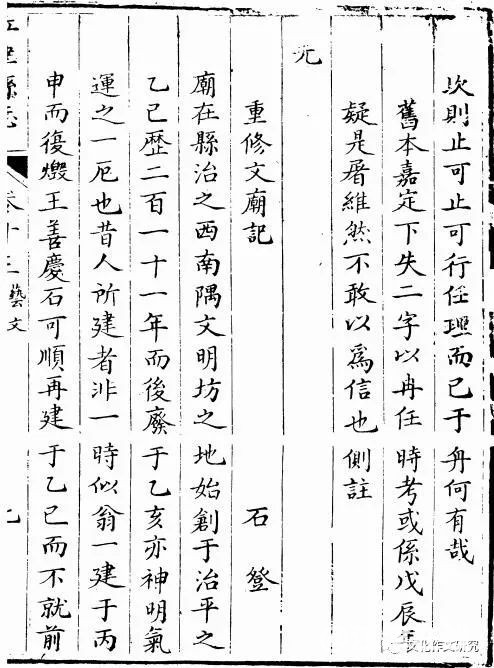 次則止可止可行任理而已于舟何有哉
舊本嘉定下失二字以冉任時考或係戊辰年
疑是屠維然不敢以爲信也側註
元
重修文廟記 石登
廟在縣治之西南隅文明坊之地始創于治平之
乙巳歴二百一十一年而後廢于乙亥亦神明氣
運之一厄也昔人所建者非一時似翁一建于丙
申而復燬王善慶石可順再建于乙巳而不就前
縣志 藝文